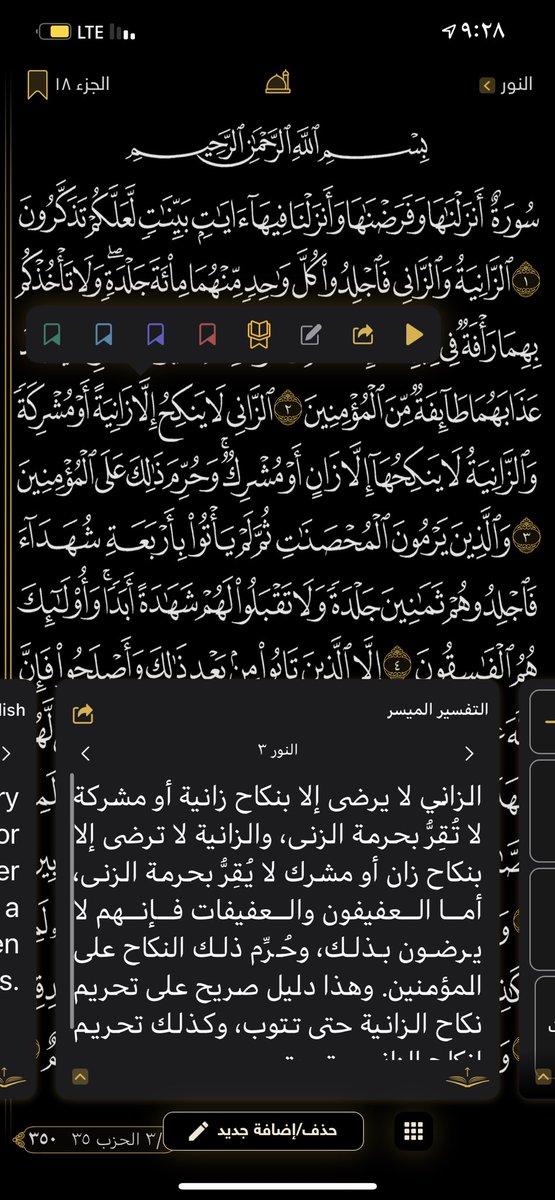 LTE ٩:٢٨
النور
الجزء ١٨
بِسْمِ ٱللَّهِ ٱلرَّحْمَٰنِ ٱلرَّحِيمِ
سُورَةٌ أَنزَلْنَٰهَا وَفَرَضْنَٰهَا وَأَنزَلْنَا فِيهَآ ءَايَٰتٍۭ بَيِّنَٰتٍ لَّعَلَّكُمْ تَذَكَّرُونَ
١ ٱلزَّانِيَةُ وَٱلزَّانِى فَٱجْلِدُوا۟ كُلَّ وَٰحِدٍ مِّنْهُمَا مِا۟ئَةَ جَلْدَةٍ ۖ وَلَا تَأْخُذْكُم
بِهِمَا رَأْفَةٌ فِى
عَذَابَهُمَا طَآئِفَةٌ مِّنَ ٱلْمُؤْمِنِينَ ٢ ٱلزَّانِى لَا يَنكِحُ إِلَّا زَانِيَةً أَوْ مُشْرِكَةً
وَٱلزَّانِيَةُ لَا يَنكِحُهَآ إِلَّا زَانٍ أَوْ مُشْرِكٌ ۚ وَحُرِّمَ ذَٰلِكَ عَلَى ٱلْمُؤْمِنِينَ
٣ وَٱلَّذِينَ يَرْمُونَ ٱلْمُحْصَنَٰتِ ثُمَّ لَمْ يَأْتُوا۟ بِأَرْبَعَةِ شُهَدَآءَ
فَٱجْلِدُوهُمْ ثَمَٰنِينَ جَلْدَةً وَلَا تَقْبَلُوا۟ لَهُمْ شَهَٰدَةً أَبَدًا ۚ وَأُو۟لَٰٓئِكَ
هُمُ ٱلْفَٰسِقُونَ ٤ إِلَّا ٱلَّذِينَ تَابُوا۟ مِنۢ بَعْدِ ذَٰلِكَ وَأَصْلَحُوا۟ فَإِنَّ
التفسير الميسر
النور ٣
الزاني لا يرضى إلا بنكاح زانية أو مشركة
لا تُقِرُّ بحرمة الزنى، والزانية لا ترضى إلا
بنكاح زان أو مشرك لا يُقِرُّ بحرمة الزنى،
أما العفيفون والعفيفات فإنهم لا
يرضون بذلك، وحُرِّم ذلك النكاح على
المؤمنين. وهذا دليل صريح على تحريم
نكاح الزانية حتى تتوب، وكذلك تحريم
حذف/إضافة جديد
٣/ الحزب ٣٥ ٣٥٠